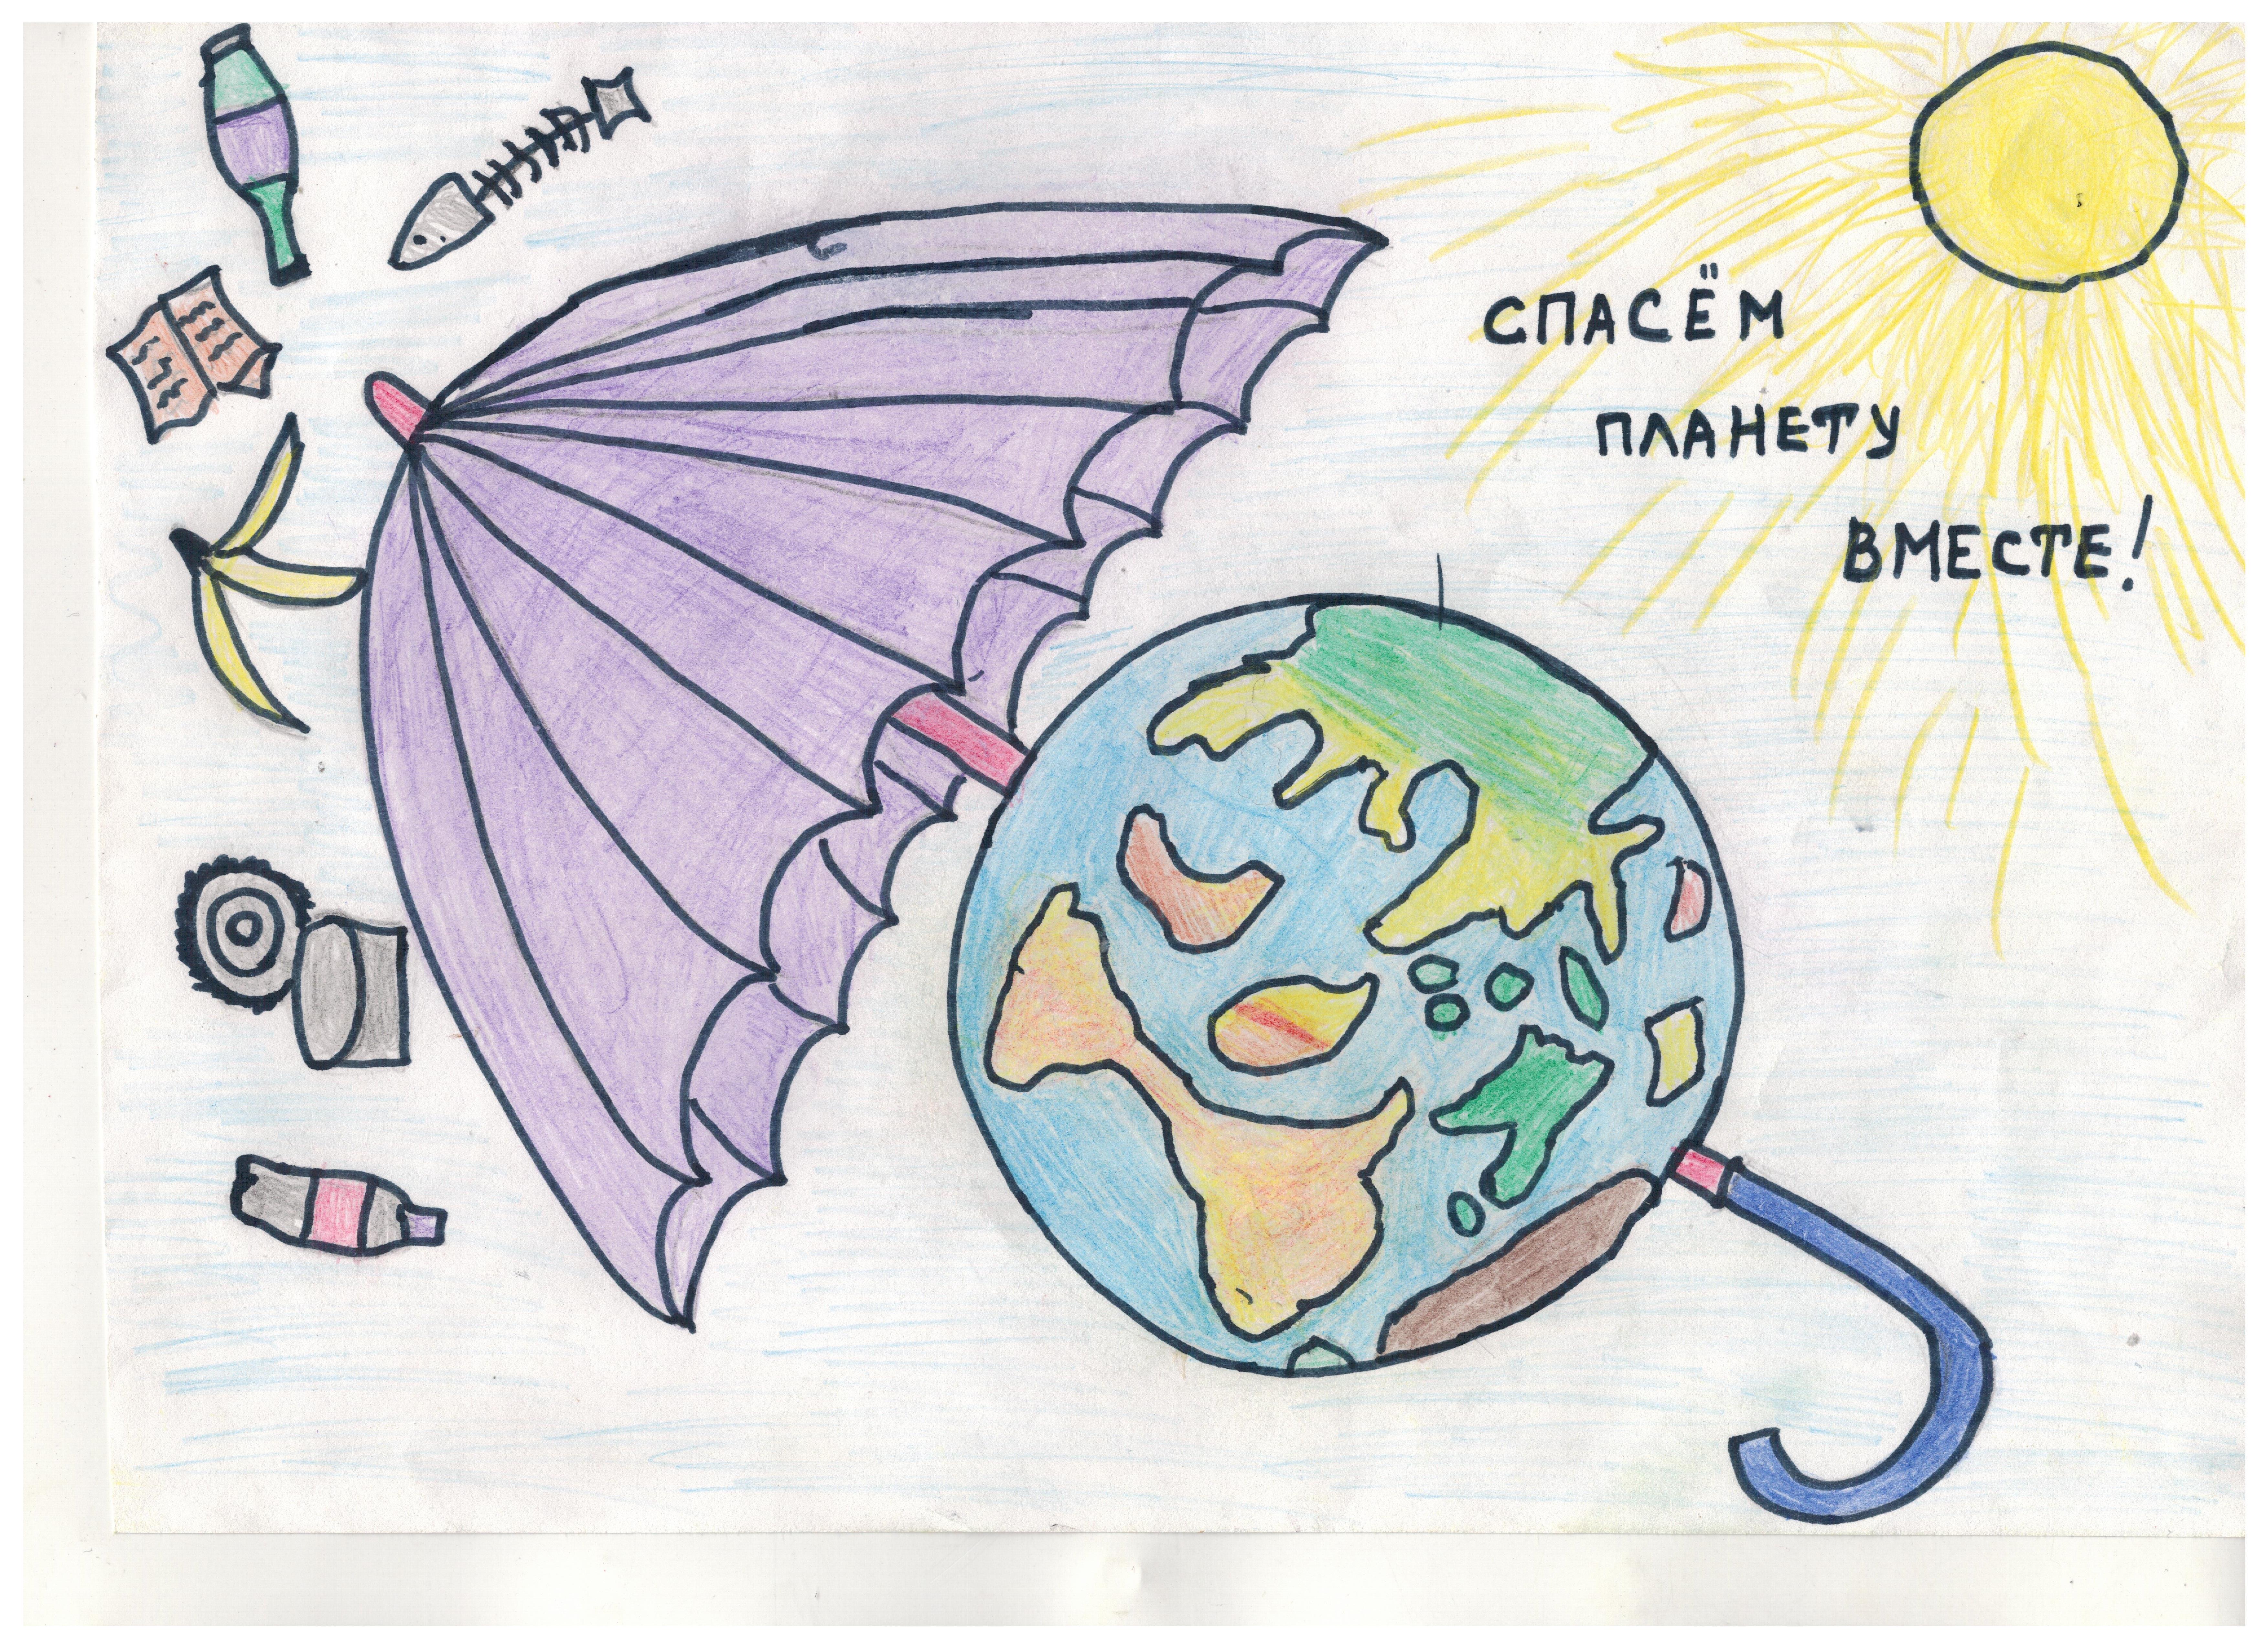 СПАСЁМ
ПЛАНЕТУ
ВМЕСТЕ!